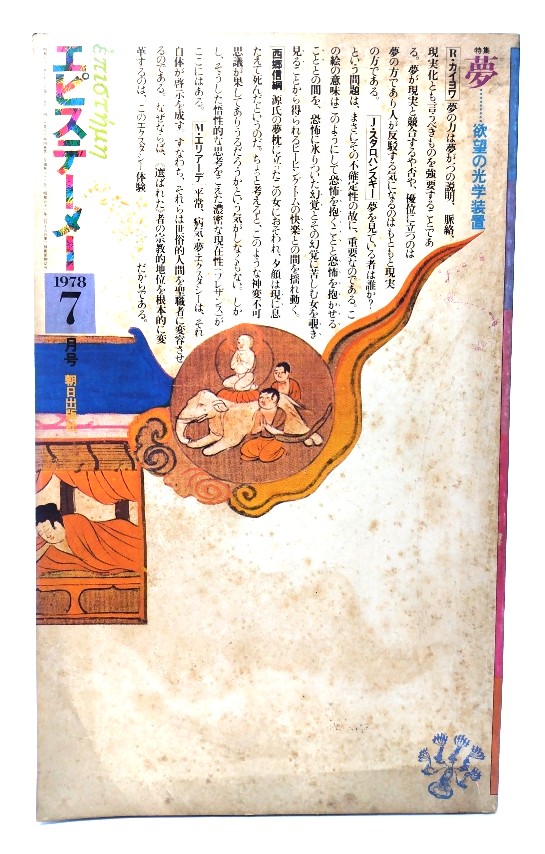 特集
夢………欲望の光学装置
R・カイヨワ 夢の力は夢がつの説明、脈絡、
現実化とも言うべきものを強要することであ
る。夢が現実と競合するや否や、優位に立つのは
夢の方であり人が反駁する気になるのはもともと現実
の方である。 J・スタロバンスキー 夢を見ている者は誰か?
という問題は、まさしその不確定性の故に、重要なのである。こ
の絵の意味は、このようにして恐怖を抱くことと恐怖を抱かせる
こととの間を、恐怖に氷りついた幻覚とその幻覚に苦しむ女を覗き
見ることから得られるピーピング・トムの快楽との間を揺れ動く。
西郷信綱 源氏の夢枕に立ったこの女におそわれ、夕顔は現に息
たえて死んだというのだ。ちょっと考えると、このような神変不可
思議が果してありうるだろうかという気がしなくもない。しか
し、そうした惰性的な思考をこえた濃密な現在性(プレザンス)が
ここにはある。 M・エリアーデ 平常、病気・夢・エクスタシーは、それ
自体が啓示を成す。すなわち、それらは世俗的人間を聖職者に変容させ
るのである。なぜならば、選ばれた者の宗教的地位を根本的に変
革するのは、このエクスタシー体験 だからである。
έπιστημη
エピステーメー
1978
7
月号
朝日出版社